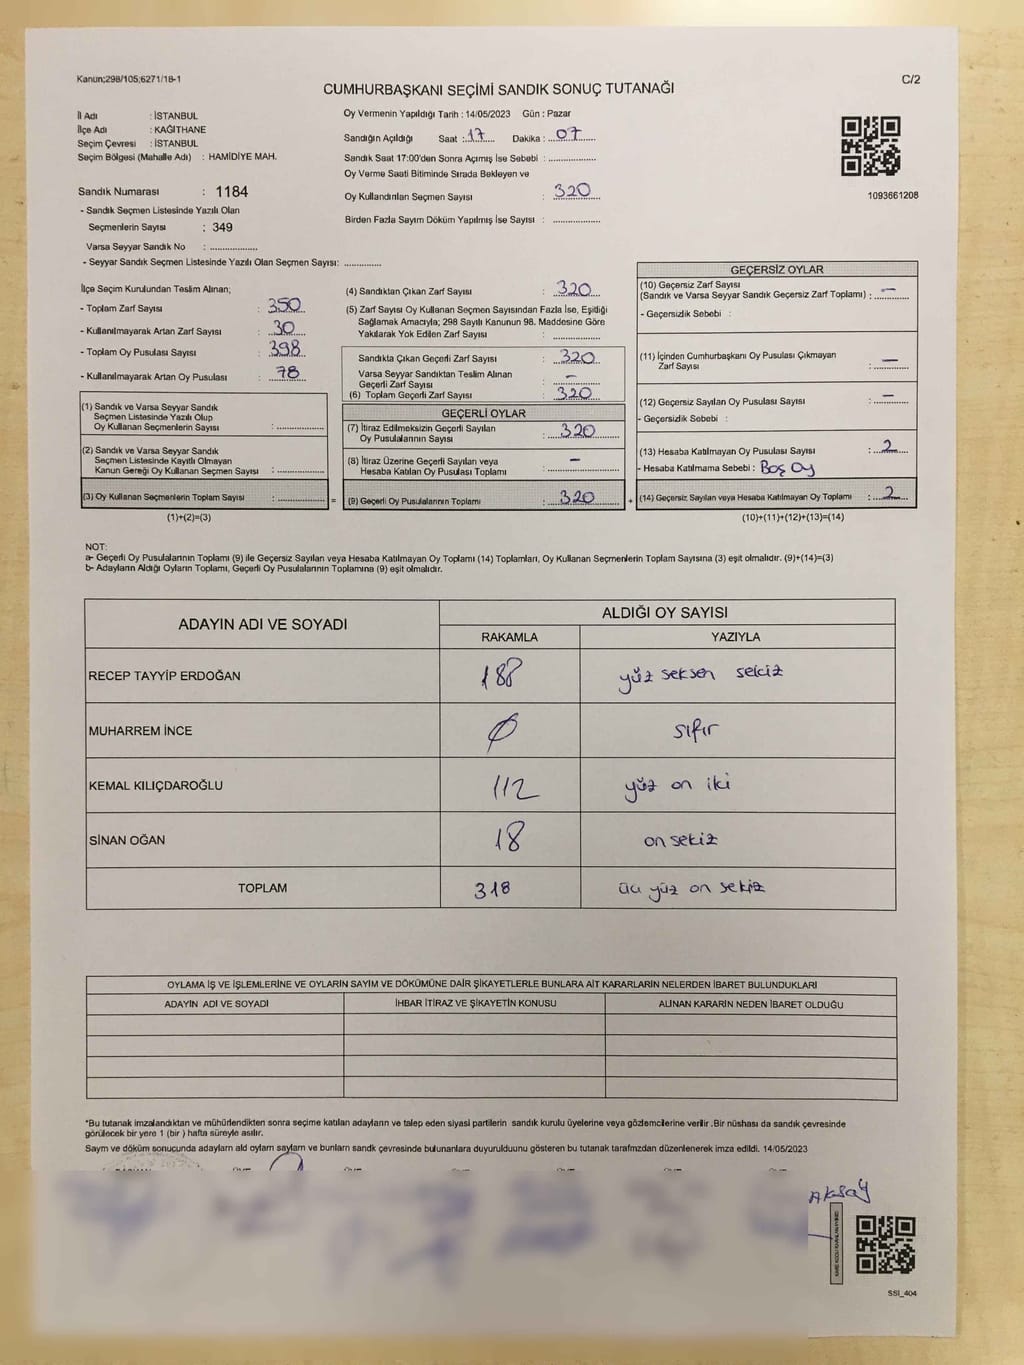 Kanun;298/105;6271/18-1
C/2
CUMHURBAŞKANI SEÇİMİ SANDIK SONUÇ TUTANAĞI
İl Adı : İSTANBUL
İlçe Adı : KAĞITHANE
Seçim Çevresi : İSTANBUL
Seçim Bölgesi (Mahalle Adı) : HAMİDİYE MAH.
Sandık Numarası : 1184
- Sandık Seçmen Listesinde Yazılı Olan
Seçmenlerin Sayısı : 349
Varsa Seyyar Sandık No : ..............
- Seyyar Sandık Seçmen Listesinde Yazılı Olan Seçmen Sayısı: ............
Oy Vermenin Yapıldığı Tarih : 14/05/2023 Gün : Pazar
Sandığın Açıldığı Saat : 17 Dakika : 07
Sandık Saat 17:00'den Sonra Açımış İse Sebebi : ..............
Oy Verme Saati Bitiminde Sırada Bekleyen ve
Oy Kullandırılan Seçmen Sayısı : 320
Birden Fazla Sayım Döküm Yapılmış İse Sayısı : ..............
1093661208
İlçe Seçim Kurulundan Teslim Alınan;
- Toplam Zarf Sayısı : 350
- Kullanılmayarak Artan Zarf Sayısı : 30
- Toplam Oy Pusulası Sayısı : 398
- Kullanılmayarak Artan Oy Pusulası : 78
(1) Sandık ve Varsa Seyyar Sandık
Seçmen Listesinde Yazılı Olup
Oy Kullanan Seçmenlerin Sayısı : ..............
(2) Sandık ve Varsa Seyyar Sandık
Seçmen Listesinde Kayıtlı Olmayan
Kanun Gereği Oy Kullanan Seçmen Sayısı : ..............
(3) Oy Kullanan Seçmenlerin Toplam Sayısı : .............. =
(1)+(2)=(3)
(4) Sandıktan Çıkan Zarf Sayısı : 320
(5) Zarf Sayısı Oy Kullanan Seçmen Sayısından Fazla İse, Eşitliği
Sağlamak Amacıyla; 298 Sayılı Kanunun 98. Maddesine Göre
Yakılarak Yok Edilen Zarf Sayısı : ..............
Sandıkta Çıkan Geçerli Zarf Sayısı : 320
Varsa Seyyar Sandıktan Teslim Alınan
Geçerli Zarf Sayısı : –
(6) Toplam Geçerli Zarf Sayısı : 320
GEÇERLİ OYLAR
(7) İtiraz Edilmeksizin Geçerli Sayılan
Oy Pusulalarının Sayısı : 320
(8) İtiraz Üzerine Geçerli Sayılan veya
Hesaba Katılan Oy Pusulası Toplamı : –
(9) Geçerli Oy Pusulalarının Toplamı : 320 +
GEÇERSİZ OYLAR
(10) Geçersiz Zarf Sayısı
(Sandık ve Varsa Seyyar Sandık Geçersiz Zarf Toplamı) : –
- Geçersizlik Sebebi :
(11) İçinden Cumhurbaşkanı Oy Pusulası Çıkmayan
Zarf Sayısı : –
(12) Geçersiz Sayılan Oy Pusulası Sayısı : –
- Geçersizlik Sebebi :
(13) Hesaba Katılmayan Oy Pusulası Sayısı : 2
- Hesaba Katılmama Sebebi : Boş Oy
(14) Geçersiz Sayılan veya Hesaba Katılmayan Oy Toplamı : 2
(10)+(11)+(12)+(13)=(14)
NOT:
a- Geçerli Oy Pusulalarının Toplamı (9) ile Geçersiz Sayılan veya Hesaba Katılmayan Oy Toplamı (14) Toplamları, Oy Kullanan Seçmenlerin Toplam Sayısına (3) eşit olmalıdır. (9)+(14)=(3)
b- Adayların Aldığı Oyların Toplamı, Geçerli Oy Pusulalarının Toplamına (9) eşit olmalıdır.
ADAYIN ADI VE SOYADI ALDIĞI OY SAYISI
RAKAMLA YAZIYLA
RECEP TAYYİP ERDOĞAN 188 yüz seksen sekiz
MUHARREM İNCE 0 sıfır
KEMAL KILIÇDAROĞLU 112 yüz on iki
SİNAN OĞAN 18 on sekiz
TOPLAM 318 üç yüz on sekiz
OYLAMA İŞ VE İŞLEMLERİNE VE OYLARIN SAYIM VE DÖKÜMÜNE DAİR ŞİKAYETLERLE BUNLARA AİT KARARLARIN NELERDEN İBARET BULUNDUKLARI
ADAYIN ADI VE SOYADI İHBAR İTİRAZ VE ŞİKAYETİN KONUSU ALINAN KARARIN NEDEN İBARET OLDUĞU
*Bu tutanak imzalandıktan ve mühürlendikten sonra seçime katılan adayların ve talep eden siyasi partilerin sandık kurulu üyelerine veya gözlemcilerine verilir .Bir nüshası da sandık çevresinde
görülecek bir yere 1 (bir ) hafta süreyle asılır.
Sayım ve döküm sonucunda adayların ald oyların sayların ve bunların sandk çevresinde bulunanlara duyurulduunu gösteren bu tutanak tarafımzdan düzenlenerek imza edildi. 14/05/2023
Aksoy
SSI_404